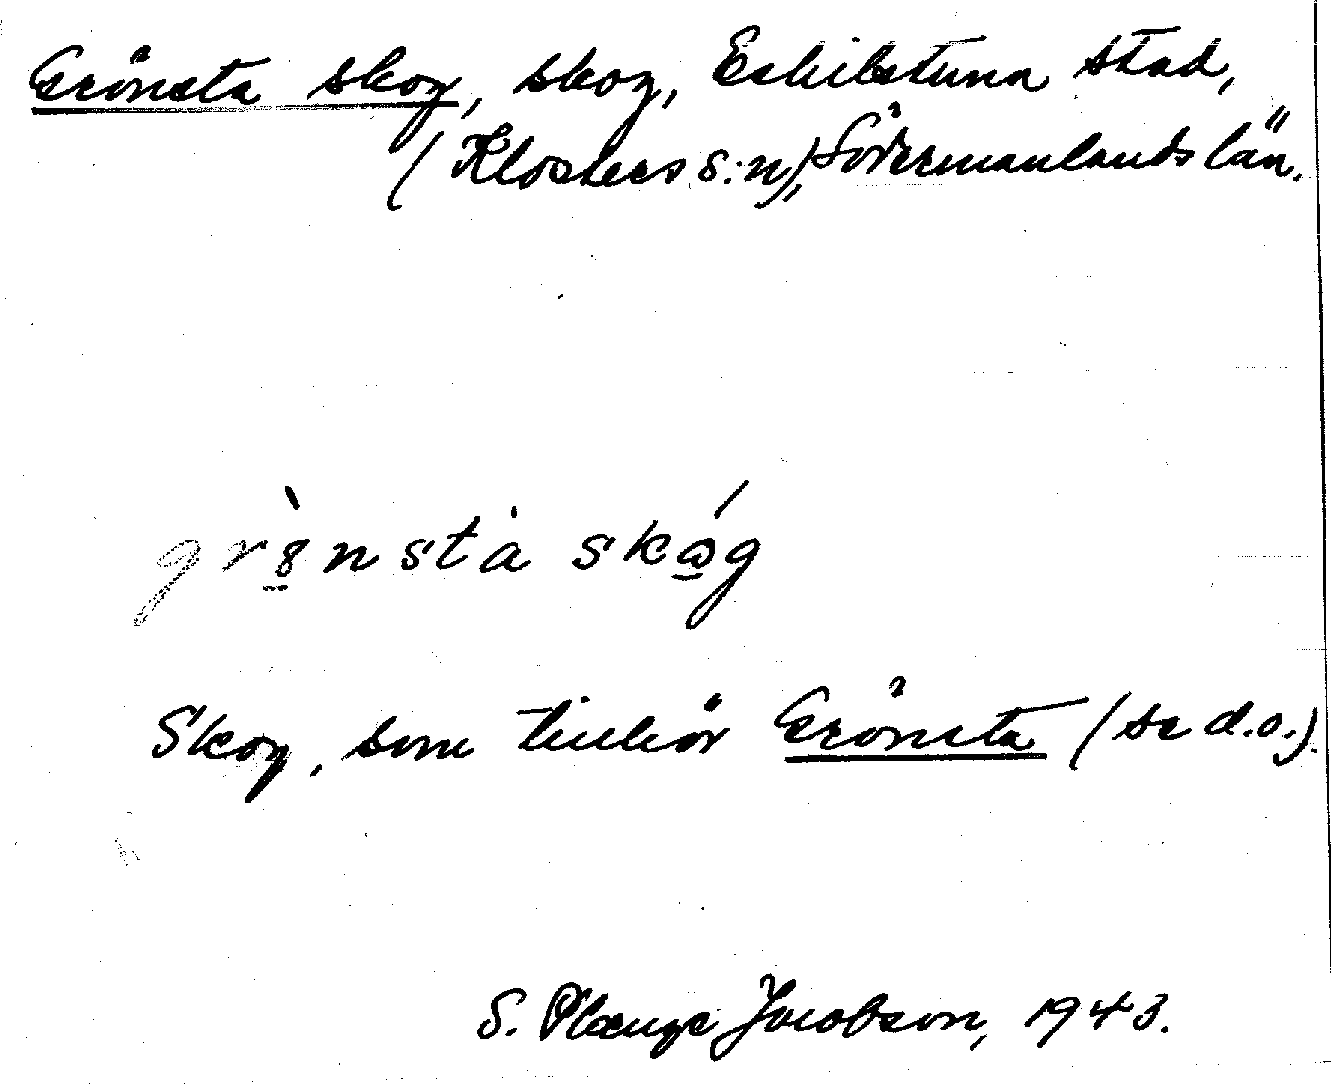 Grönsta skog, skog, Eskilstuna stad,
(Klosters s:n), Södermanlands län.
grö̀nstȧ skǿg
Skog, som tillhör Grönsta (se d.o.).
S. Plænge Jacobson, 1943.